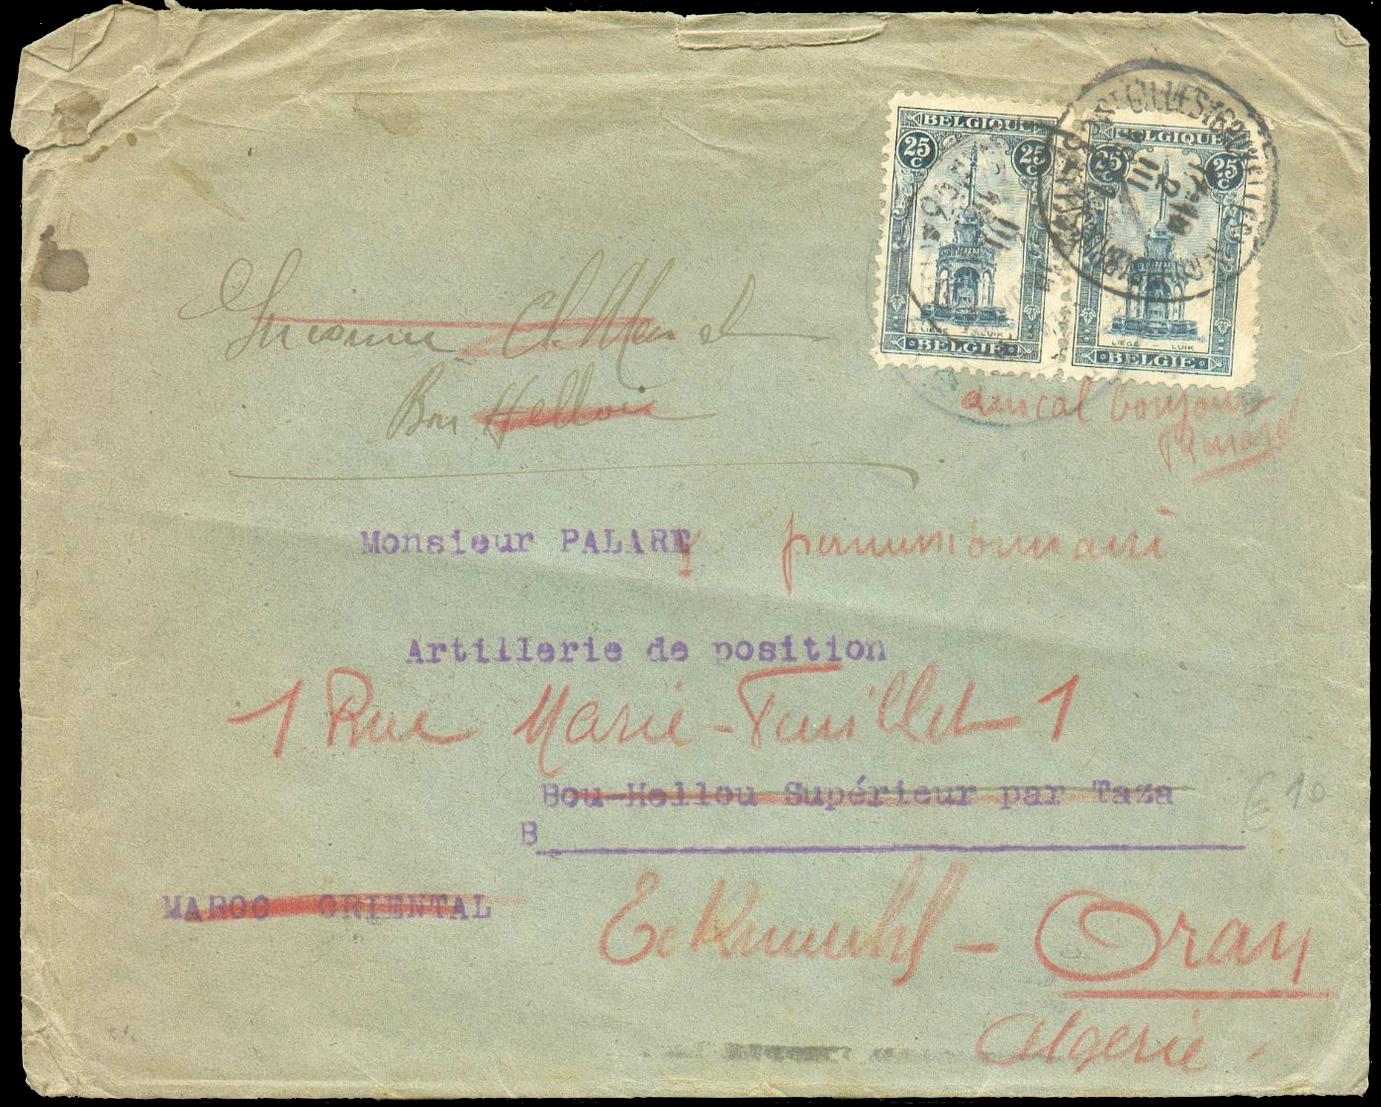 BELGIQUE
25 C 25 C
LIEGE LUIK
BELGIË
BELGIQUE
25 C 25 C
LIEGE LUIK
BELGIË
ST GILLES (BRUXELLES)
Bou Hellou
amical bonjour
Monsieur PALARE
permissionnaire
Artillerie de position
1 Rue Marie-Feuillet 1
Bou-Hellou Supérieur par Taza
B
MAROC ORIENTAL
Eckmuhl - Oran
Algérie
€ 10